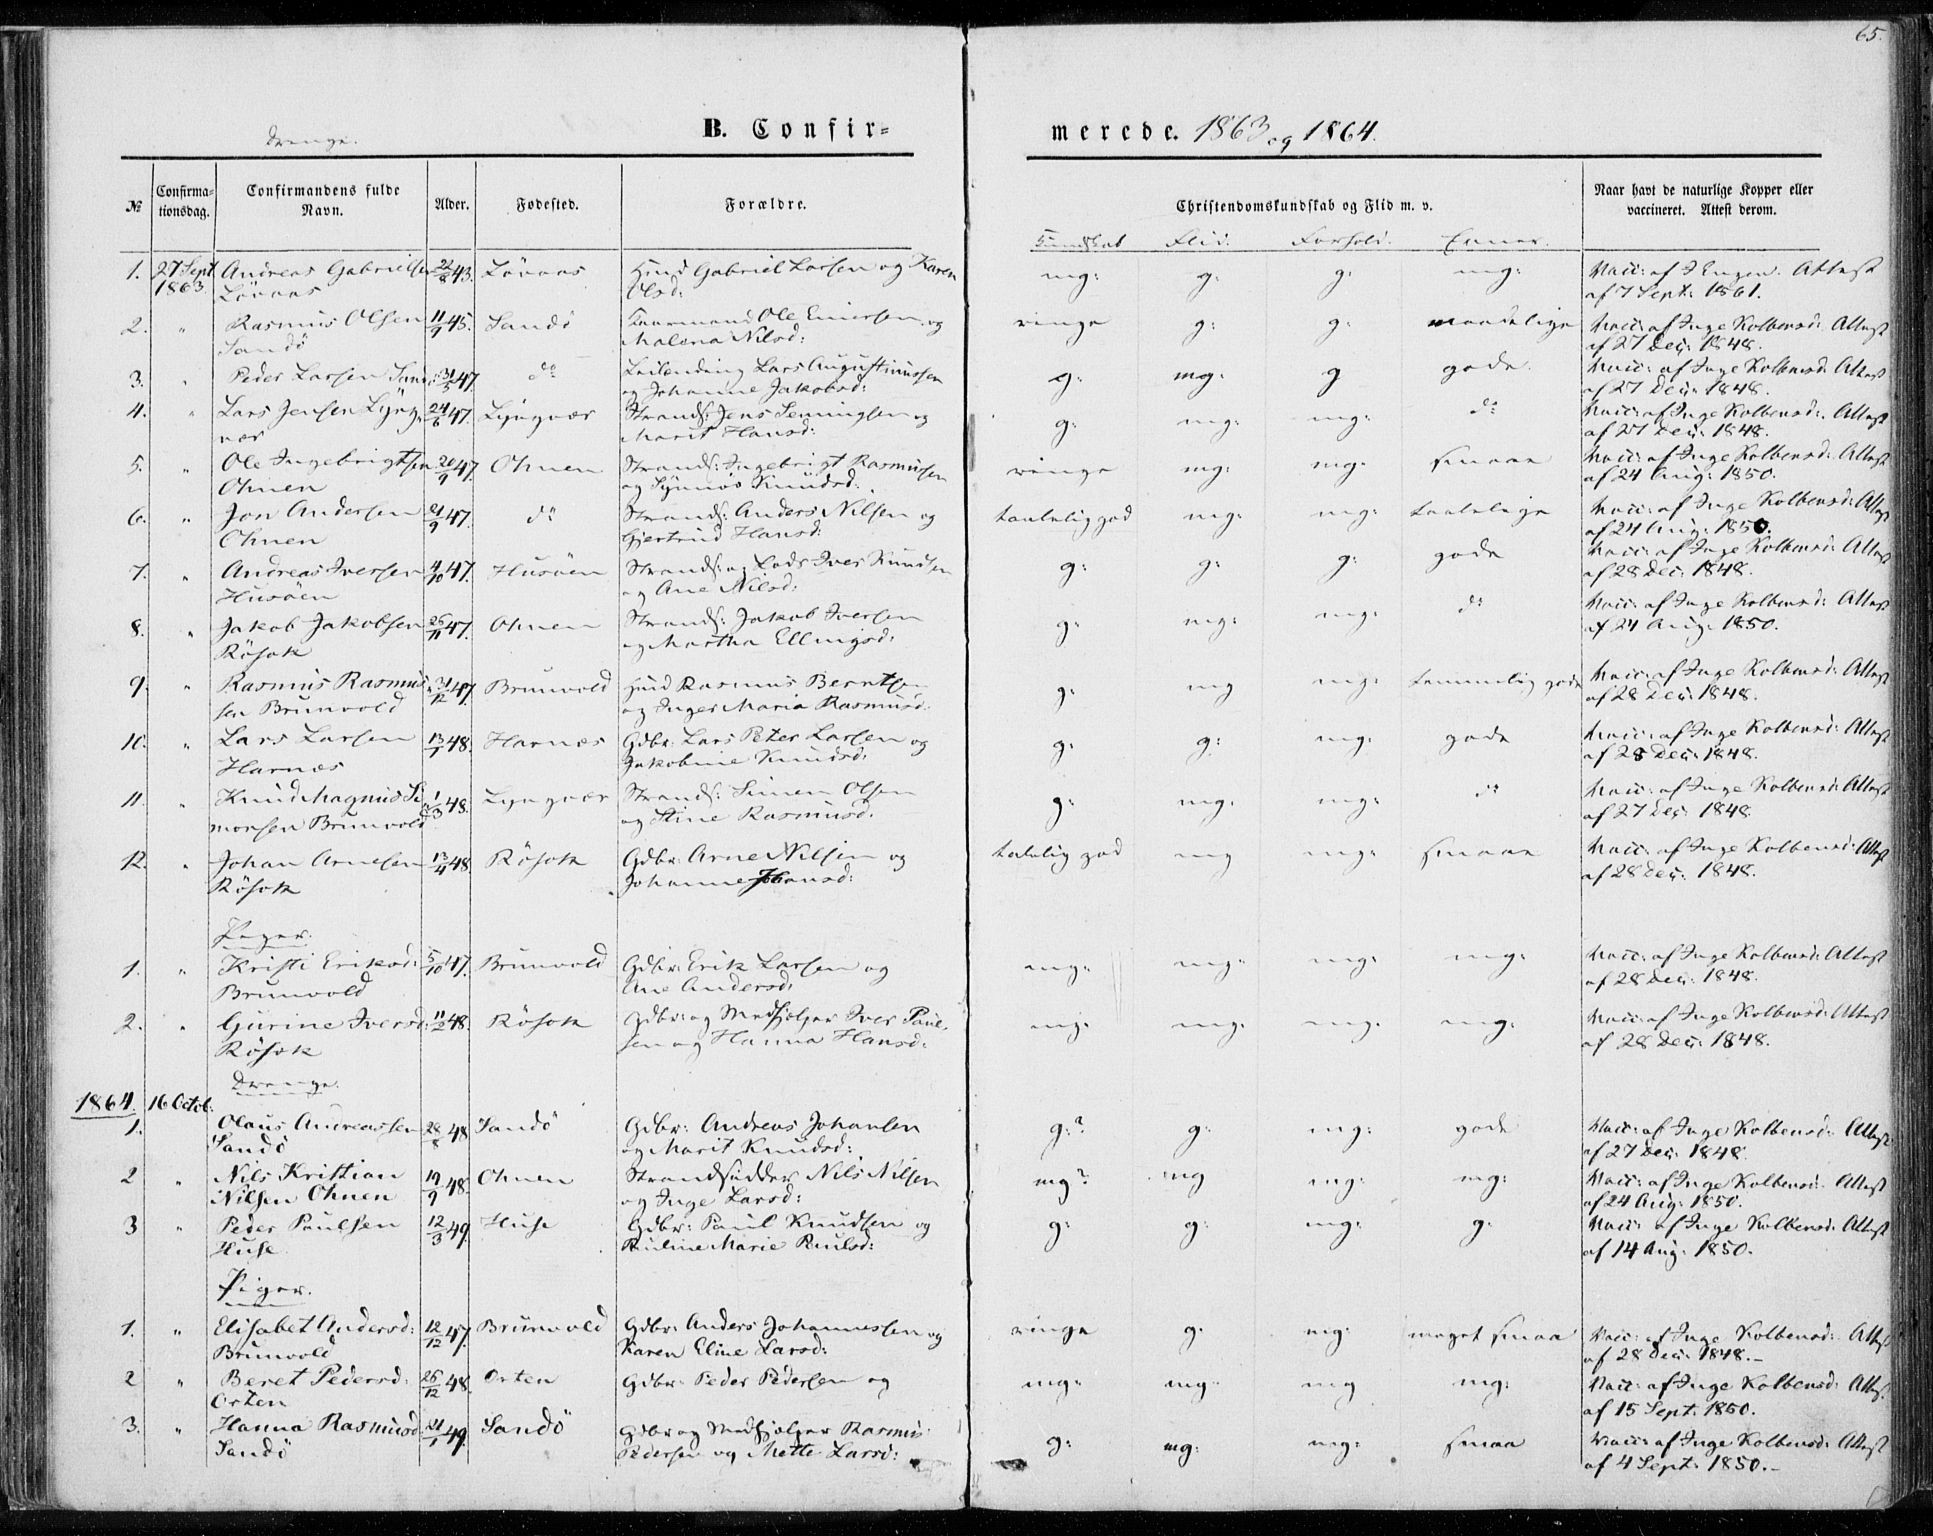 65.
Drenge.
B. Confir-
merede. 1863 og 1864.
№
Confirma-
tionsdag.
Confirmandens fulde
Navn.
Alder.
Fødested.
Forældre.
Christendomskundskab og Flid m. v.
Naar havt de naturlige Kopper eller
vaccineret. Attest derom.
Kundskab Flid. Forhold. Evner.
1. 27 Sept Andreas Gabrielsen 22/8 43. Lövaas Huusd Gabriel Larsen og Karen mg: g: g: mg: Vacc: af J Engen. Attest
1863. Lövaas Olsd: af 7 Sept: 1861.
2. " Rasmus Olsen 11/9 45. Sandö Kaarmand Ole Einersen og ringe g: g: maadelige Vacc: af Inge Kolbensd: Attest
Sandö Malena Nilsd: af 27 Dec: 1848.
3. " Peder Larsen Sand: 31/5 47. do Leilending Lars Augustinussen g: mg: g gode. Vacc: af Inge Kolbensd: Attest
og Johanne Jakobsd: af 27 Dec: 1848.
4. " Lars Jensen Lyng- 24/6 47. Lyngvær Strands: Jens Semingsen og g: mg: mg: do Vacc: af Inge Kolbensd: Attest
vær Marit Hansd: af 27 Dec: 1848.
5. " Ole Ingebrigtsen 20/9 47. Ohnen Strands: Ingebrigt Rasmussen ringe mg: mg. smaae Vacc: af Inge Kolbensd: Attest
Ohnen og Synnös Knudsd: af 24 Aug: 1850.
6. " Jon Andersen 21/9 47. do Strands: Anders Nilsen og taalelig god mg: mg: taalelige Vacc: af Inge Kolbensd: Attest
Ohnen Gjertrud Hansd: af 24 Aug: 1850.
7. " Andreas Iversen 4/10 47. Husöen Strands: og Lods Iver Knudsen g: g: g: gode Vacc: af Inge Kolbensd: Attest
Husöen og Ane Nilsd: af 28 Dec: 1848.
8. " Jakob Jakobsen 26/11 47. Ohnen Strands: Jakob Iversen g: mg: mg: do Vacc: af Inge Kolbensd: Attest
Rösok og Martha Ellingsd: af 24 Aug: 1850.
9. " Rasmus Rasmus- 31/12 47. Brunvold Huusd Rasmus Berntsen g: mg mg: temmelig gode Vacc: af Inge Kolbensd: Attest
sen Brunvold og Inger Maria Rasmusd: af 28 Dec: 1848.
10. " Lars Larsen 13/1 48. Harnæs Gdbr: Lars Peter Larsen og g: g: mg: gode Vacc: af Inge Kolbensd: Attest
Harnæs Jakobine Knudsd: af 28 Dec: 1848.
11. " Knud Magnus Si- 1/3 48. Lyngvær Strands: Simen Olsen g: mg: mg: do Vacc: af Inge Kolbensd: Attest
monsen Brunvold og Stine Rasmusd. af 27 Dec: 1848.
12. " Johan Arnesen 13/4 48 Rösok Gdbr: Arne Nilsen og taalelig god mg mg: smaae Vacc: af Inge Kolbensd: Attest
Rösok Johanne Hansd: af 28 Dec: 1848.
Piger.
1. " Kristi Eriksd: 5/10 47. Brunvold Gdbr: Erik Larsen og mg: mg: mg: mg: Vacc: af Inge Kolbensd: Attest
Brunvold Ane Andersd: af 28 Dec: 1848.
2. " Gurine Iversd: 11/2 48. Rösok Gdbr: og Medhjelper Iver Paul- mg: mg: mg: mg: Vacc: af Inge Kolbensd: Attest
Rösok sen og Hanna Hansd: af 28 Dec: 1848.
Drenge.
1864. 16 Octob:
1. Olaus Andreassen 28/8 48 Sandö Gdbr: Andreas Johansen g:? g: mg: gode Vacc: af Inge Kolbensd: Attest
Sandö og Marit Knudsd: af 27 Dec: 1848.
2 " Nils Kristian 19/9 48. Ohnen Strandsidder Nils Nilsen mg? mg mg: mg: Vacc: af Inge Kolbensd: Attest
Nilsen Ohnen og Inge Larsd: af 24 Aug: 1850.
3 " Peder Paulsen 12/3 49. Huse Gdbr: Paul Knudsen og g: g: mg: g: Vacc: af Inge Kolbensd: Attest
Huse Pauline Marie Paulsd: af 14 Aug: 1850.
Piger.
1. " Elisabet Andersd: 12/12 47. Brunvold Gdbr: Anders Johannessen og ringe g. mg: meget smaa Vacc: af Inge Kolbensd: Attest
Brunvold Karen Eline Larsd: af 28 Dec: 1848.-
2 " Beret Pedersd: 26/12 48. Orten Gdbr: Peder Pedersen og mg: mg: mg mg: Vacc: af Inge Kolbensd: Attest.
Orten af 15 Sept: 1850.
3. " Hanna Rasmusd: 21/1 49. Sandö Gdbr og Medhjelper Rasmus g: mg: mg: smaa Vacc: af Inge Kolbensd: Attest
Sandö Pedersen og Mette Larsd: af 4 Sept: 1850.-